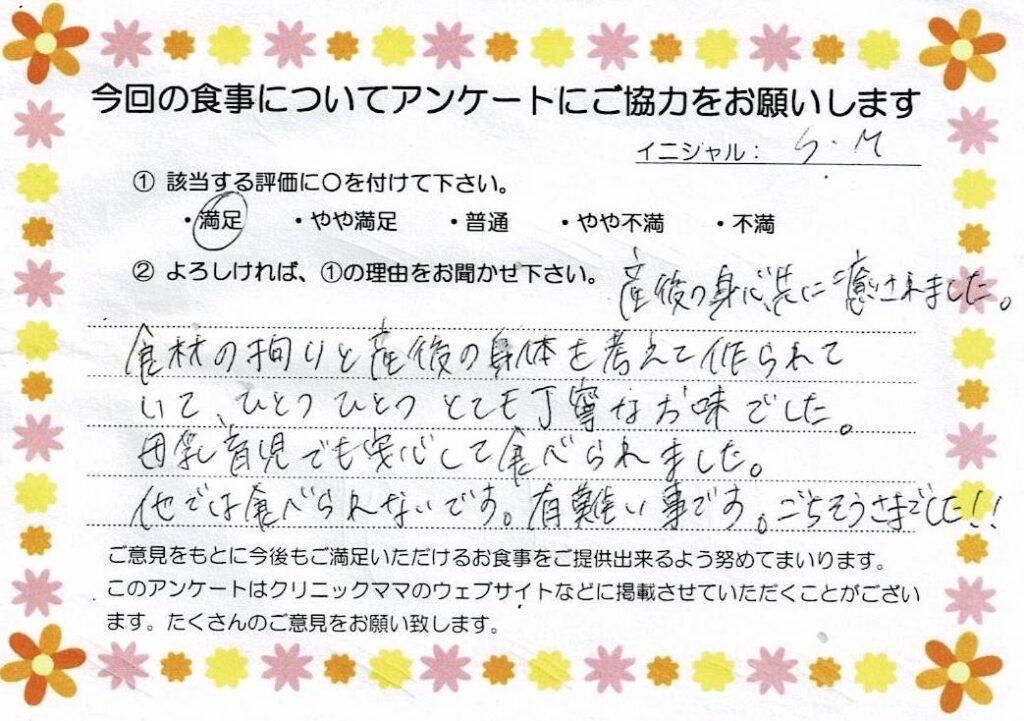 今回の食事についてアンケートにご協力をお願いします
イニシャル： S.M
① 該当する評価に〇を付けて下さい。
・満足 ・やや満足 ・普通 ・やや不満 ・不満
② よろしければ、①の理由をお聞かせ下さい。
産後の身心共に癒されました。
食材の拘りと産後の身体を考えて作られて
いて、ひとつひとつとても丁寧なお味でした。
母乳育児でも安心して食べられました。
他では食べられないです。有難い事です。ごちそうさまでした!!
ご意見をもとに今後もご満足いただけるお食事をご提供出来るよう努めてまいります。
このアンケートはクリニックママのウェブサイトなどに掲載させていただくことがござい
ます。たくさんのご意見をお願い致します。